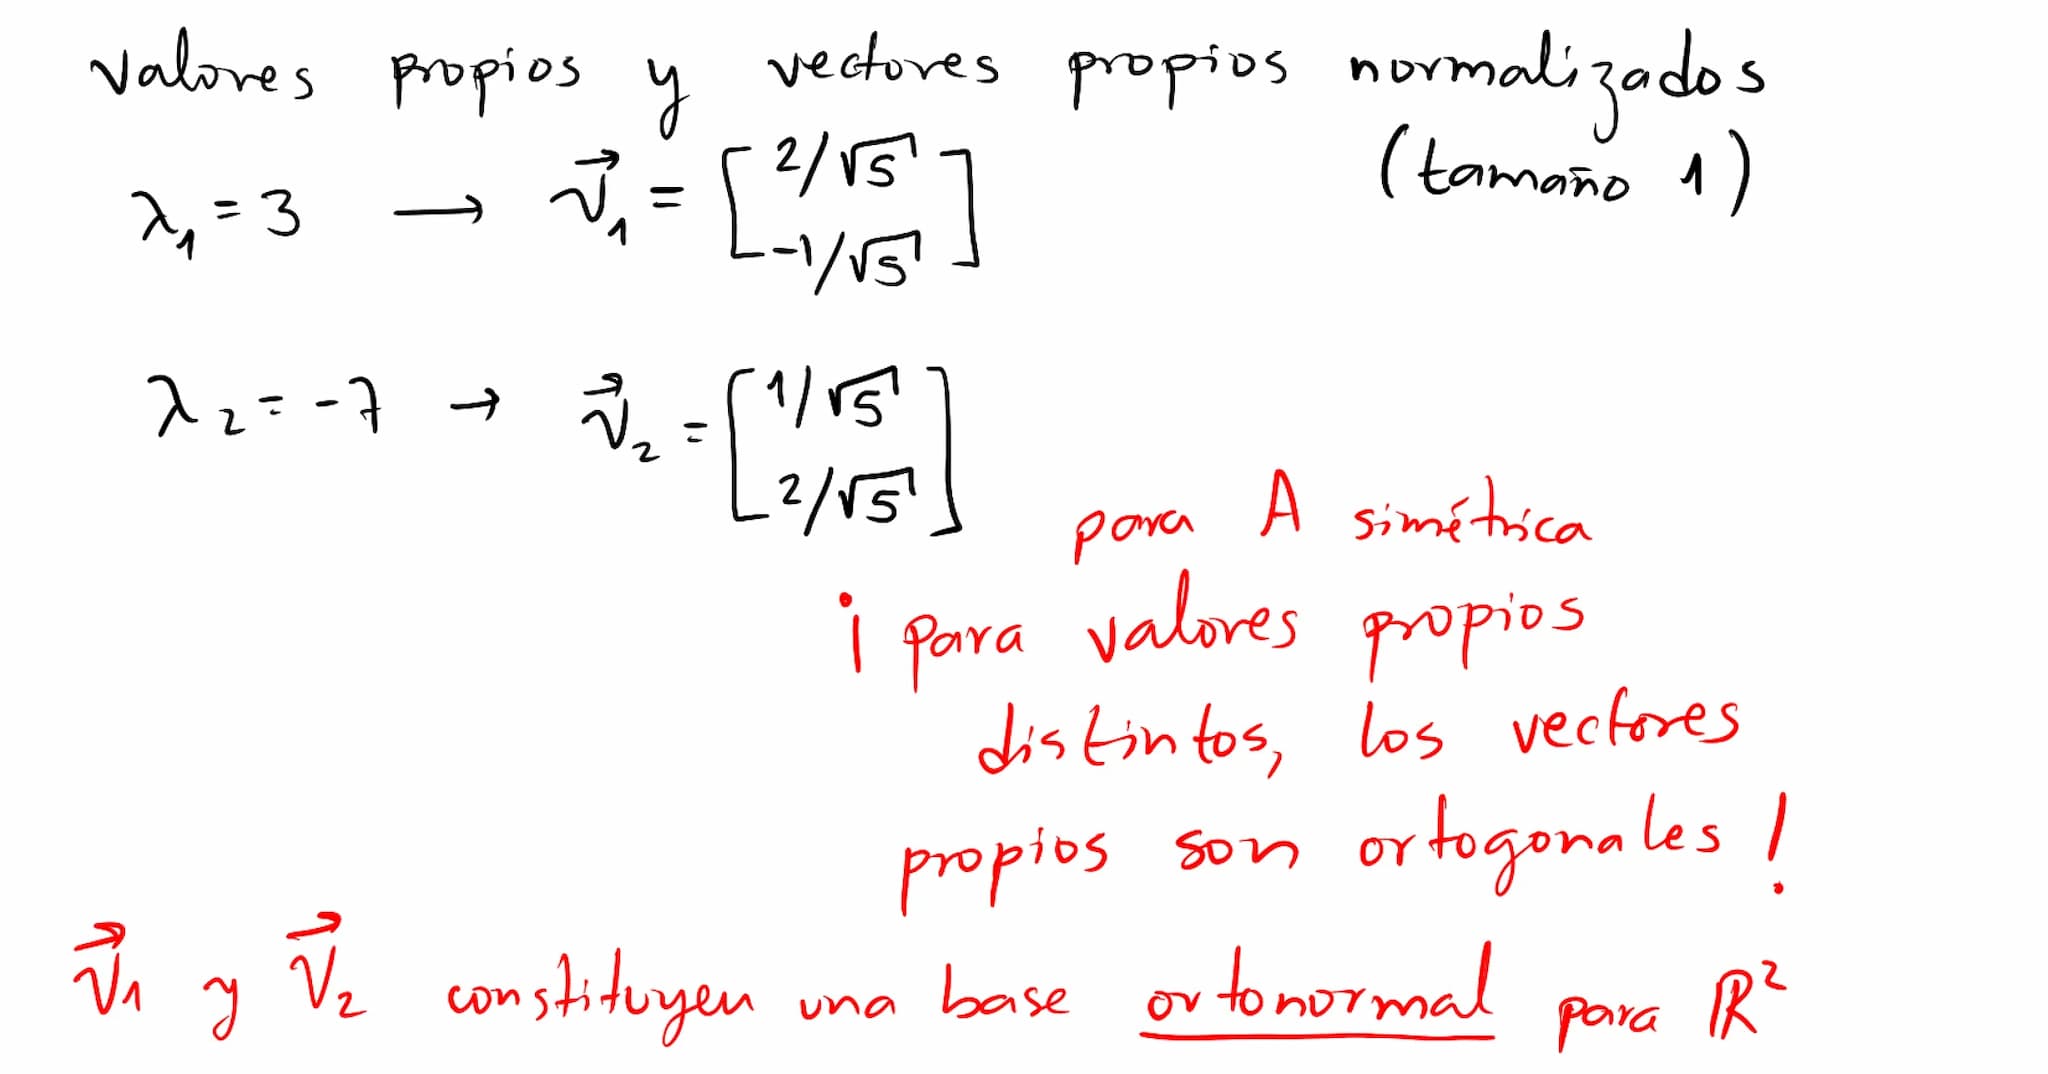 valores propios y vectores propios normalizados
(tamaño 1)
λ₁ = 3 → v⃗₁ = [2/√5 -1/√5]
λ₂ = -7 → v⃗₂ = [1/√5 2/√5]
para A simétrica
¡para valores propios
distintos, los vectores
propios son ortogonales!
v⃗₁ y v⃗₂ constituyen una base ortonormal para ℝ²